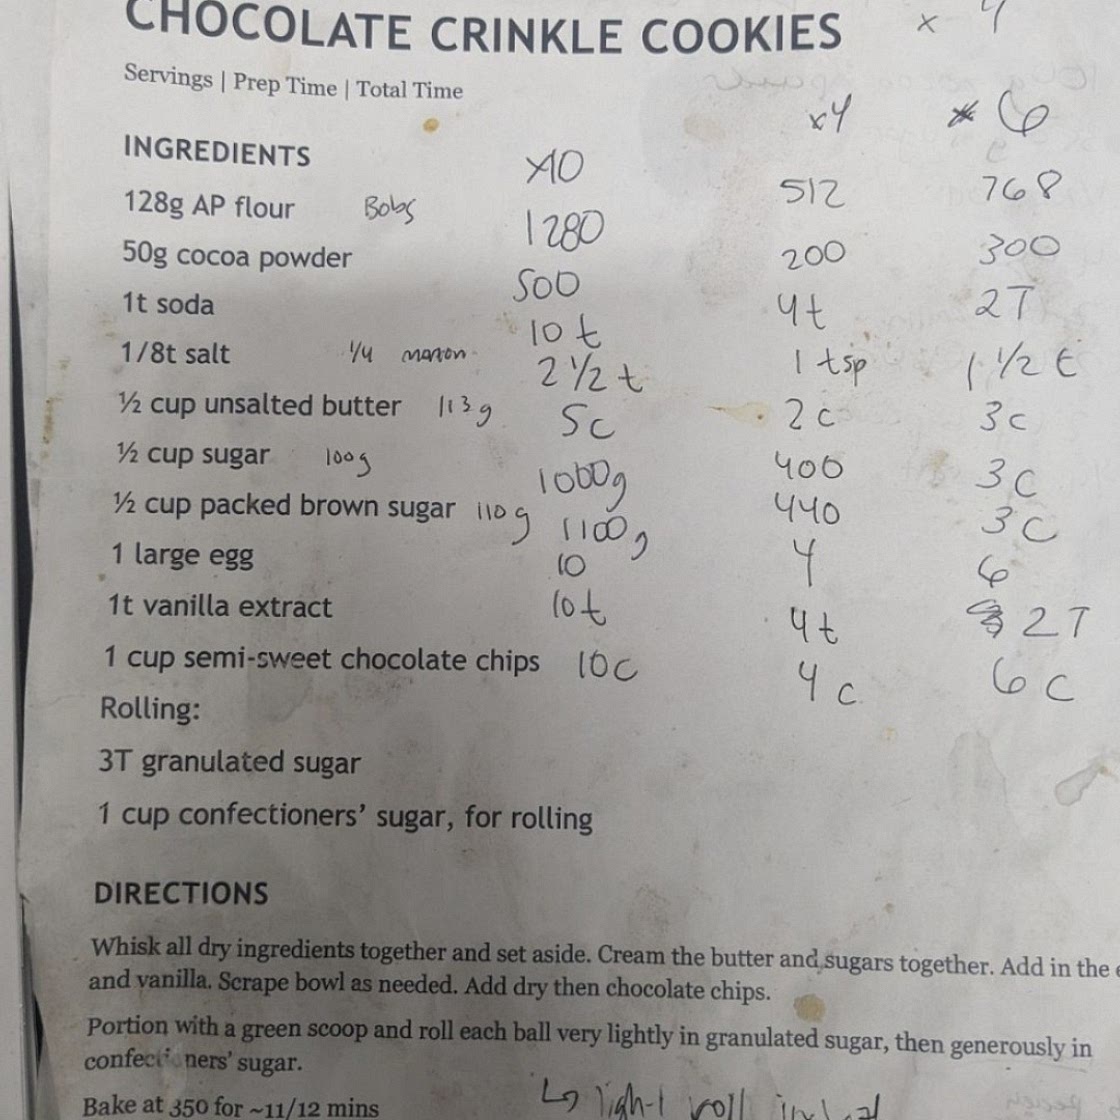 CHOCOLATE CRINKLE COOKIES x 4
Servings | Prep Time | Total Time
x4 * 6
INGREDIENTS x10
128g AP flour Bobs 1280 512 768
50g cocoa powder 500 200 300
1t soda 10 t 4t 2T
1/8t salt 1/4 morton 2 1/2 t 1 tsp 1 1/2 t
½ cup unsalted butter 113g 5c 2c 3c
½ cup sugar 100g 1000g 400 3c
½ cup packed brown sugar 110g 1100g 440 3c
1 large egg 10 4 6
1t vanilla extract 10t 4t 2T
1 cup semi-sweet chocolate chips 10c 4c 6c
Rolling:
3T granulated sugar
1 cup confectioners' sugar, for rolling
DIRECTIONS
Whisk all dry ingredients together and set aside. Cream the butter and sugars together. Add in the
and vanilla. Scrape bowl as needed. Add dry then chocolate chips.
Portion with a green scoop and roll each ball very lightly in granulated sugar, then generously in
confectioners' sugar.
Bake at 350 for ~11/12 mins
light roll in